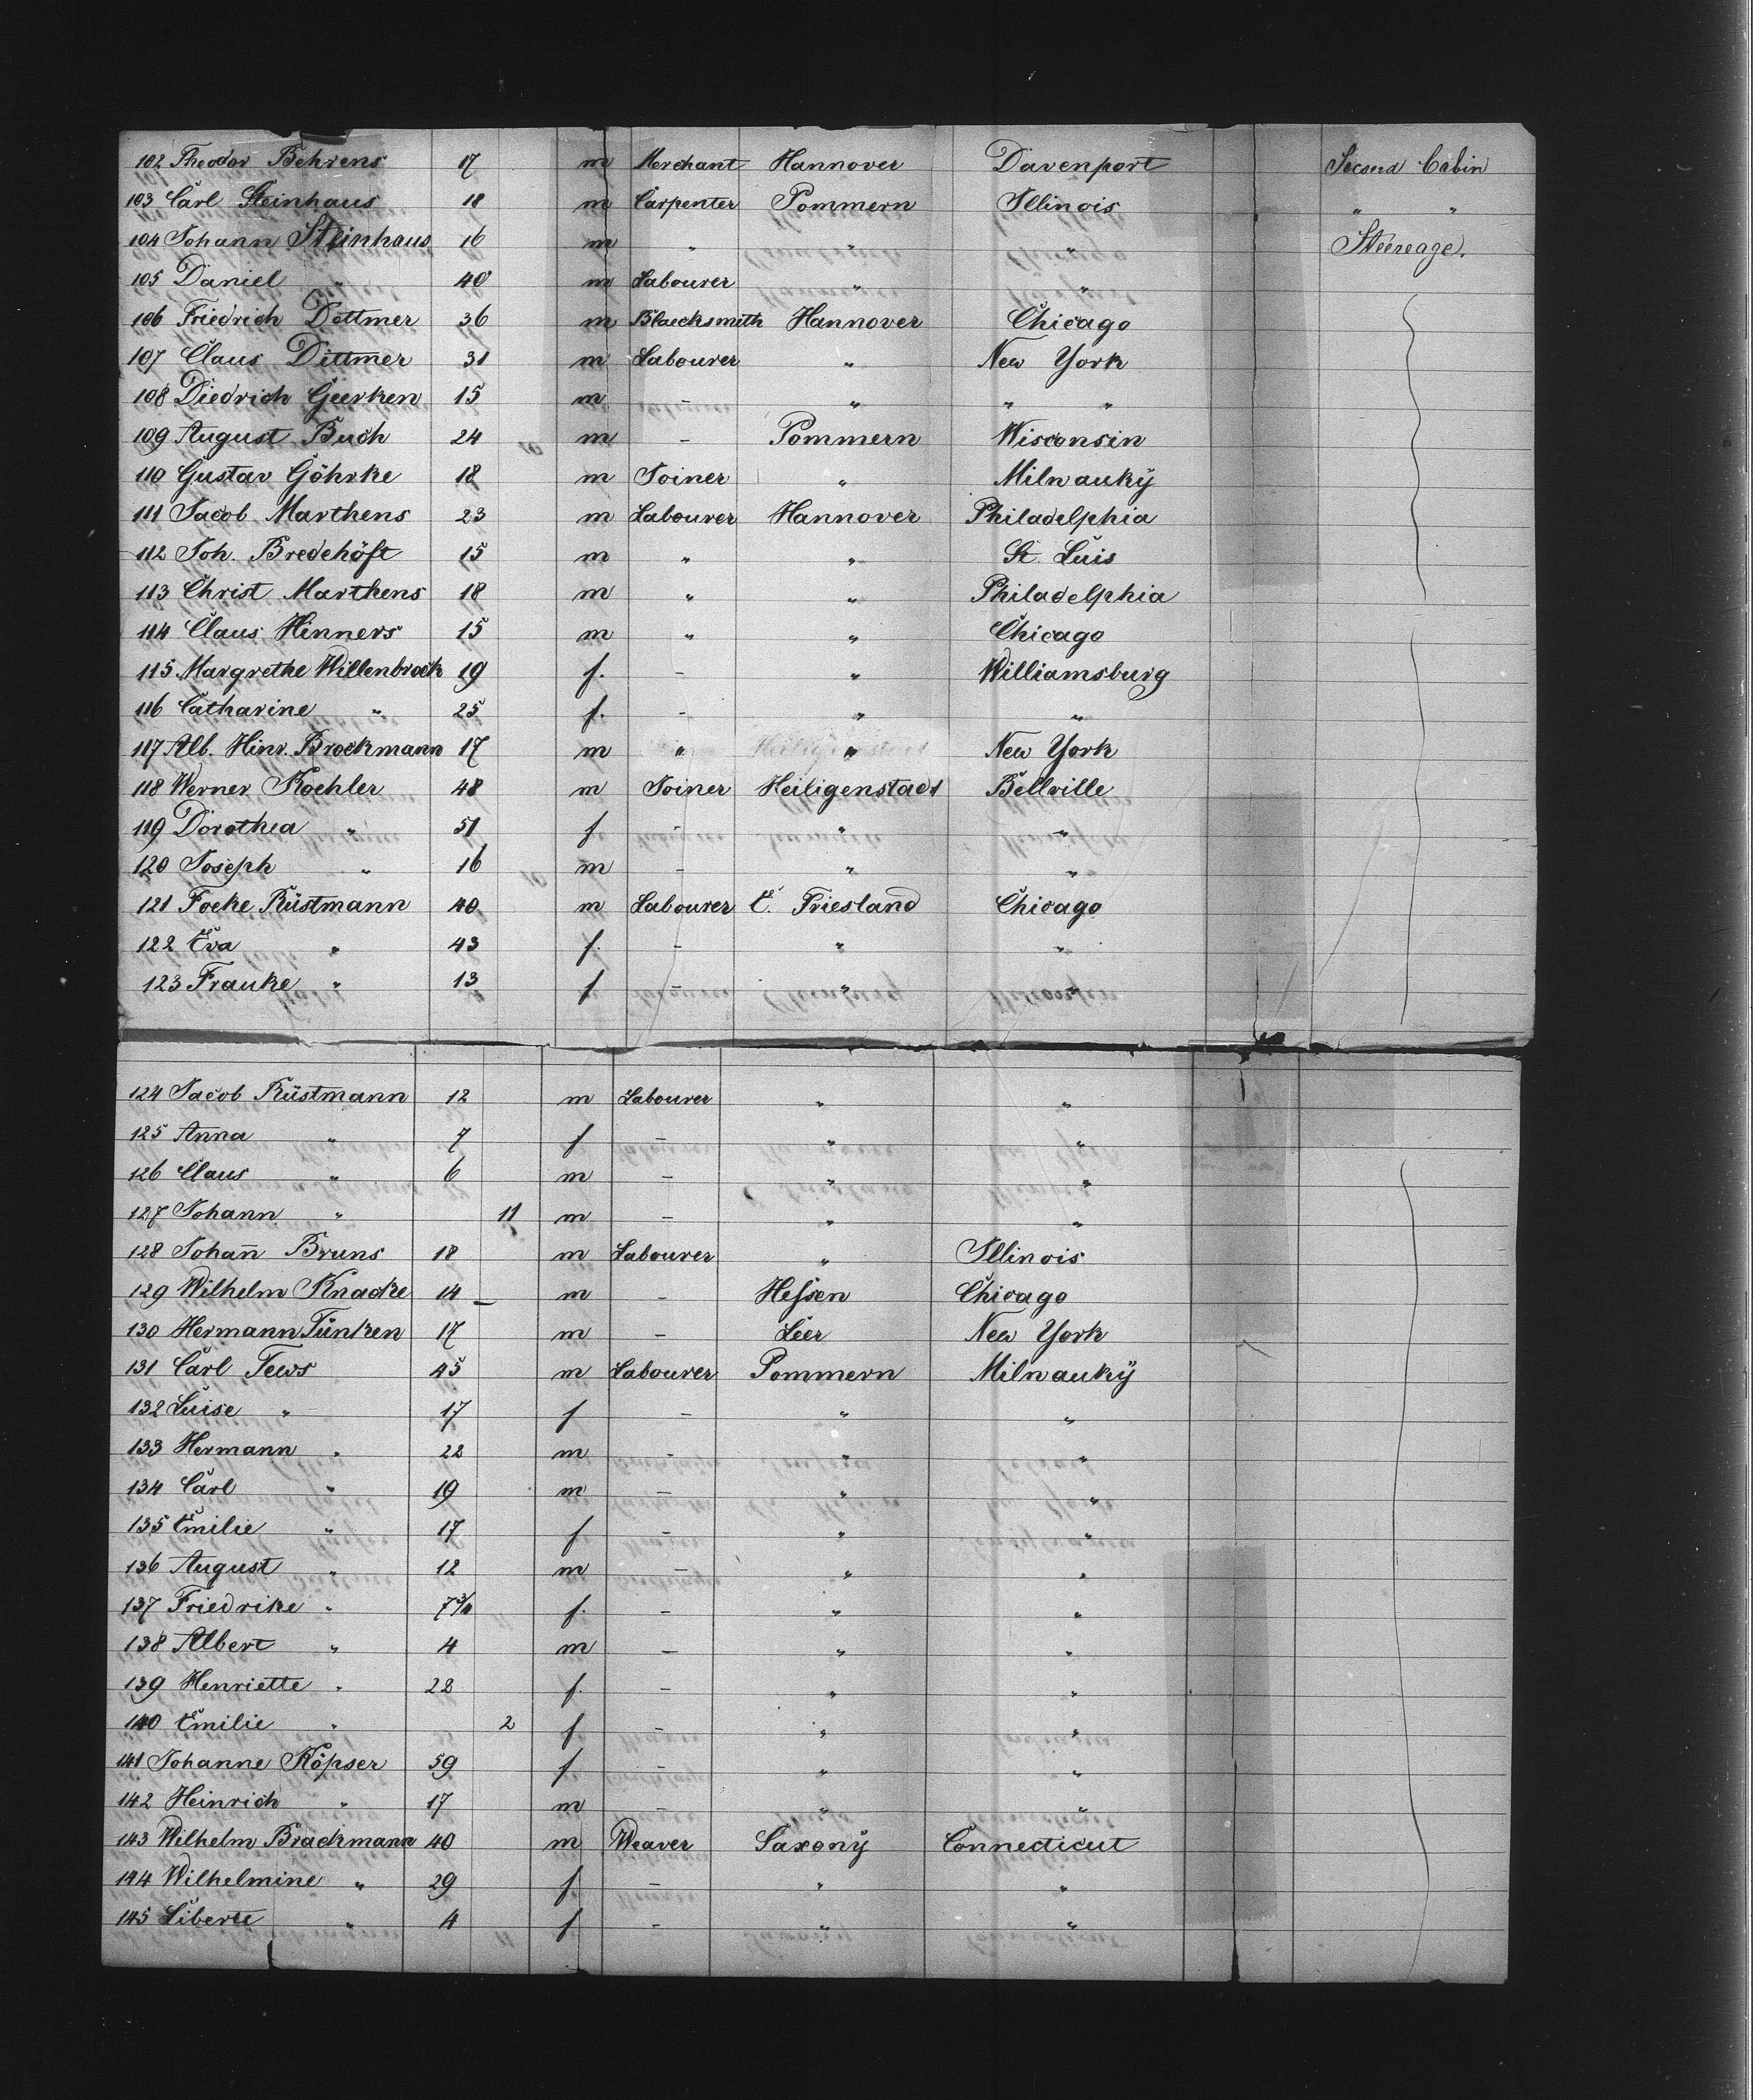 102 Theodor Behrens 17 m Merchant Hannover Davenport Second Cabin
103 Carl Steinhaus 18 m Carpenter Pommern Illinois " "
104 Johann Steinhaus 16 m " " " Steereage.
105 Daniel " 40 m Labourer " "
106 Friedrich Dettmer 36 m Blaecksmith Hannover Chicago
107 Claus Dittmer 31 m Labourer " New York
108 Diedrich Geerken 15 m - " " "
109 August Buch 24 m - Pommern Wisconsin
110 Gustav Göhrke 18 m Joiner " Milnauky
111 Jacob Marthens 23 m Labourer Hannover Philadelphia
112 Joh. Bredehöft 15 m " " St. Luis
113 Christ Marthens 18 m " " Philadelphia
114 Claus Hinners 15 m " " Chicago
115 Margrethe Willenbrock 19 f. - " Williamsburg
116 Catharine " 25 f. - " "
117 Alb. Hinr. Brockmann 17 m " " New York
118 Werner Koehler 48 m Joiner Heiligenstadt Bellville
119 Dorothea " 51 f - " "
120 Joseph " 16 m - " "
121 Focke Rüstmann 40 m Labourer E. Friesland Chicago
122 Eva " 43 f. - " "
123 Frauke " 13 f - " "
124 Jacob Rüstmann 12 m Labourer " "
125 Anna " 7 f - " "
126 Claus " 6 m - " "
127 Johann " 11 m - " "
128 Johan̄ Bruns 18 m Labourer " Illinois
129 Wilhelm Knacke 14 m - Hessen Chicago
130 Hermann Tünken 17 m - Leer New York
131 Carl Tews 45 m Labourer Pommern Milnauky
132 Luise " 17 f - " "
133 Hermann " 22 m - " "
134 Carl " 19 m - " "
135 Emilie " 17 f - " "
136 August " 12 m - " "
137 Friedrike " f. - " "
138 Albert " 4 m - " "
139 Henriette " 22 f. - " "
140 Emilie " 2 f - " "
141 Johanne Köpser 59 f. - " "
142 Heinrich " 17 m - " "
143 Wilhelm Brackmann 40 m Weaver Saxony Connecticut
144 Wilhelmine " 29 f. - " "
145 Liberte " 4 f - " "